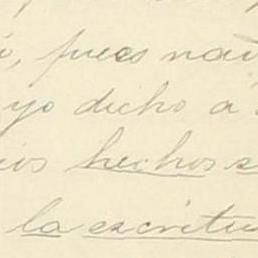 pues nad
yo dicho a
ios hechos s
la escritu